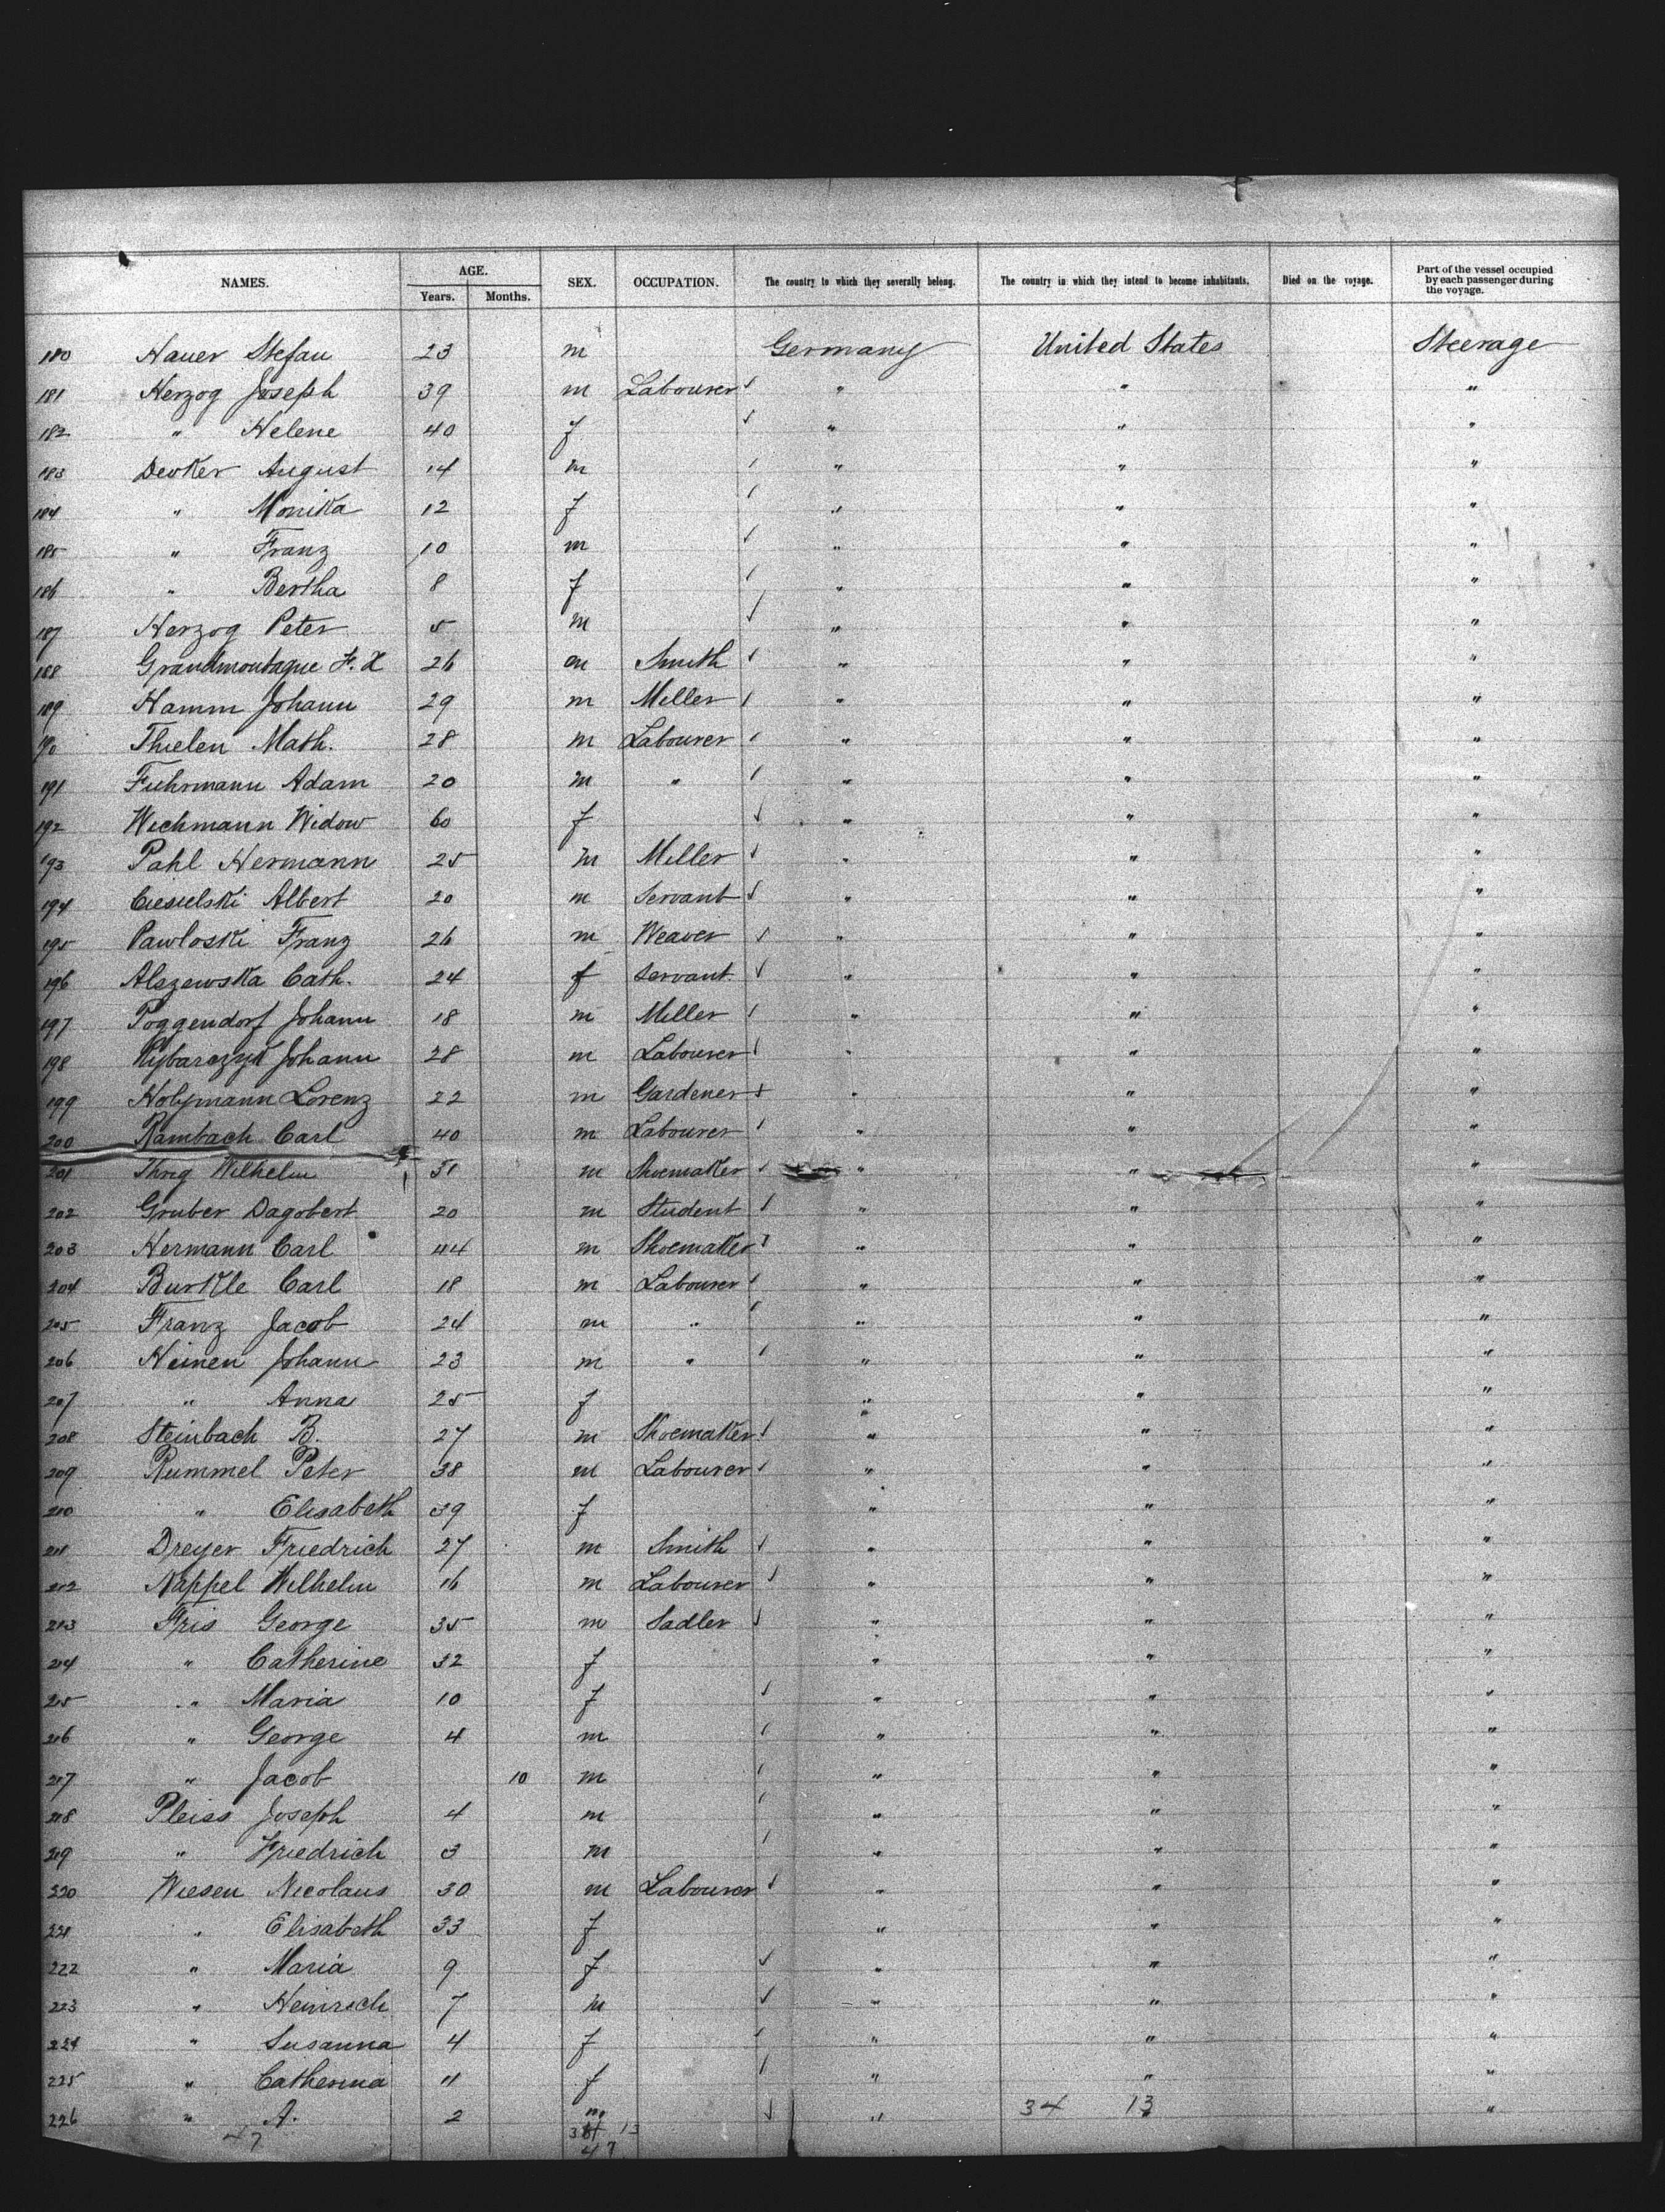 NAMES. AGE. Years. Months. SEX. OCCUPATION. The country to which they severally belong. The country in which they intend to become inhabitants. Died on the voyage. Part of the vessel occupied by each passenger during the voyage.
180 Hauer Stefan 23 m Germany United States Steerage
181 Herzog Joseph 39 m Labourer " " "
182 " Helene 40 f " " "
183 Decker August 14 m " " "
184 " Monika 12 f " " "
185 " Franz 10 m " " "
186 " Bertha 8 f " " "
187 Herzog Peter 5 m " " "
188 Grandmontagne F. X 26 m Smith " " "
189 Hamm Johann 29 m Miller " " "
190 Thielen Math. 28 m Labourer " " "
191 Fuhrmann Adam 20 m " " " "
192 Wichmann Widow 60 f " " "
193 Pahl Hermann 25 m Miller " " "
194 Ciesielski Albert 20 m Servant " " "
195 Pawloski Franz 26 m Weaver " " "
196 Alszewska Cath. 24 f Servant " " "
197 Poggendorf Johann 18 m Miller " " "
198 Rybarczyk Johann 28 m Labourer " " "
199 Lorenz 22 m Gardener " " "
200 Rambach Carl 40 m Labourer " " "
201 Ihrig Wilhelm 51 m Shoemaker " " "
202 Gruber Dagobert 20 m Student " " "
203 Hermann Carl 44 m Shoemaker " " "
204 Burkle Carl 18 m Labourer " " "
205 Franz Jacob 24 m " " " "
206 Heinen Johann 23 m " " " "
207 " Anna 25 f " " "
208 Steinbach B. 27 m Shoemaker " " "
209 Rummel Peter 38 m Labourer " " "
210 " Elisabeth 39 f " " "
211 Dreyer Friedrich 27 m Smith " " "
212 Kappel Wilhelm 16 m Labourer " " "
213 Fris George 35 m Sadler " " "
214 " Catherine 32 f " " "
215 " Maria 10 f " " "
216 " George 4 m " " "
217 " Jacob 10 m " " "
218 Pleiss Joseph 4 m " " "
219 " Friedrich 3 m " " "
220 Wiesen Nicolaus 30 m Labourer " " "
221 " Elisabeth 33 f " " "
222 " Maria 9 f " " "
223 " Heinrich 7 m " " "
224 " Susanna 4 f " " "
225 " Catherina " f " " "
226 " A. 2 m " 34 13 "
47 34 13
47